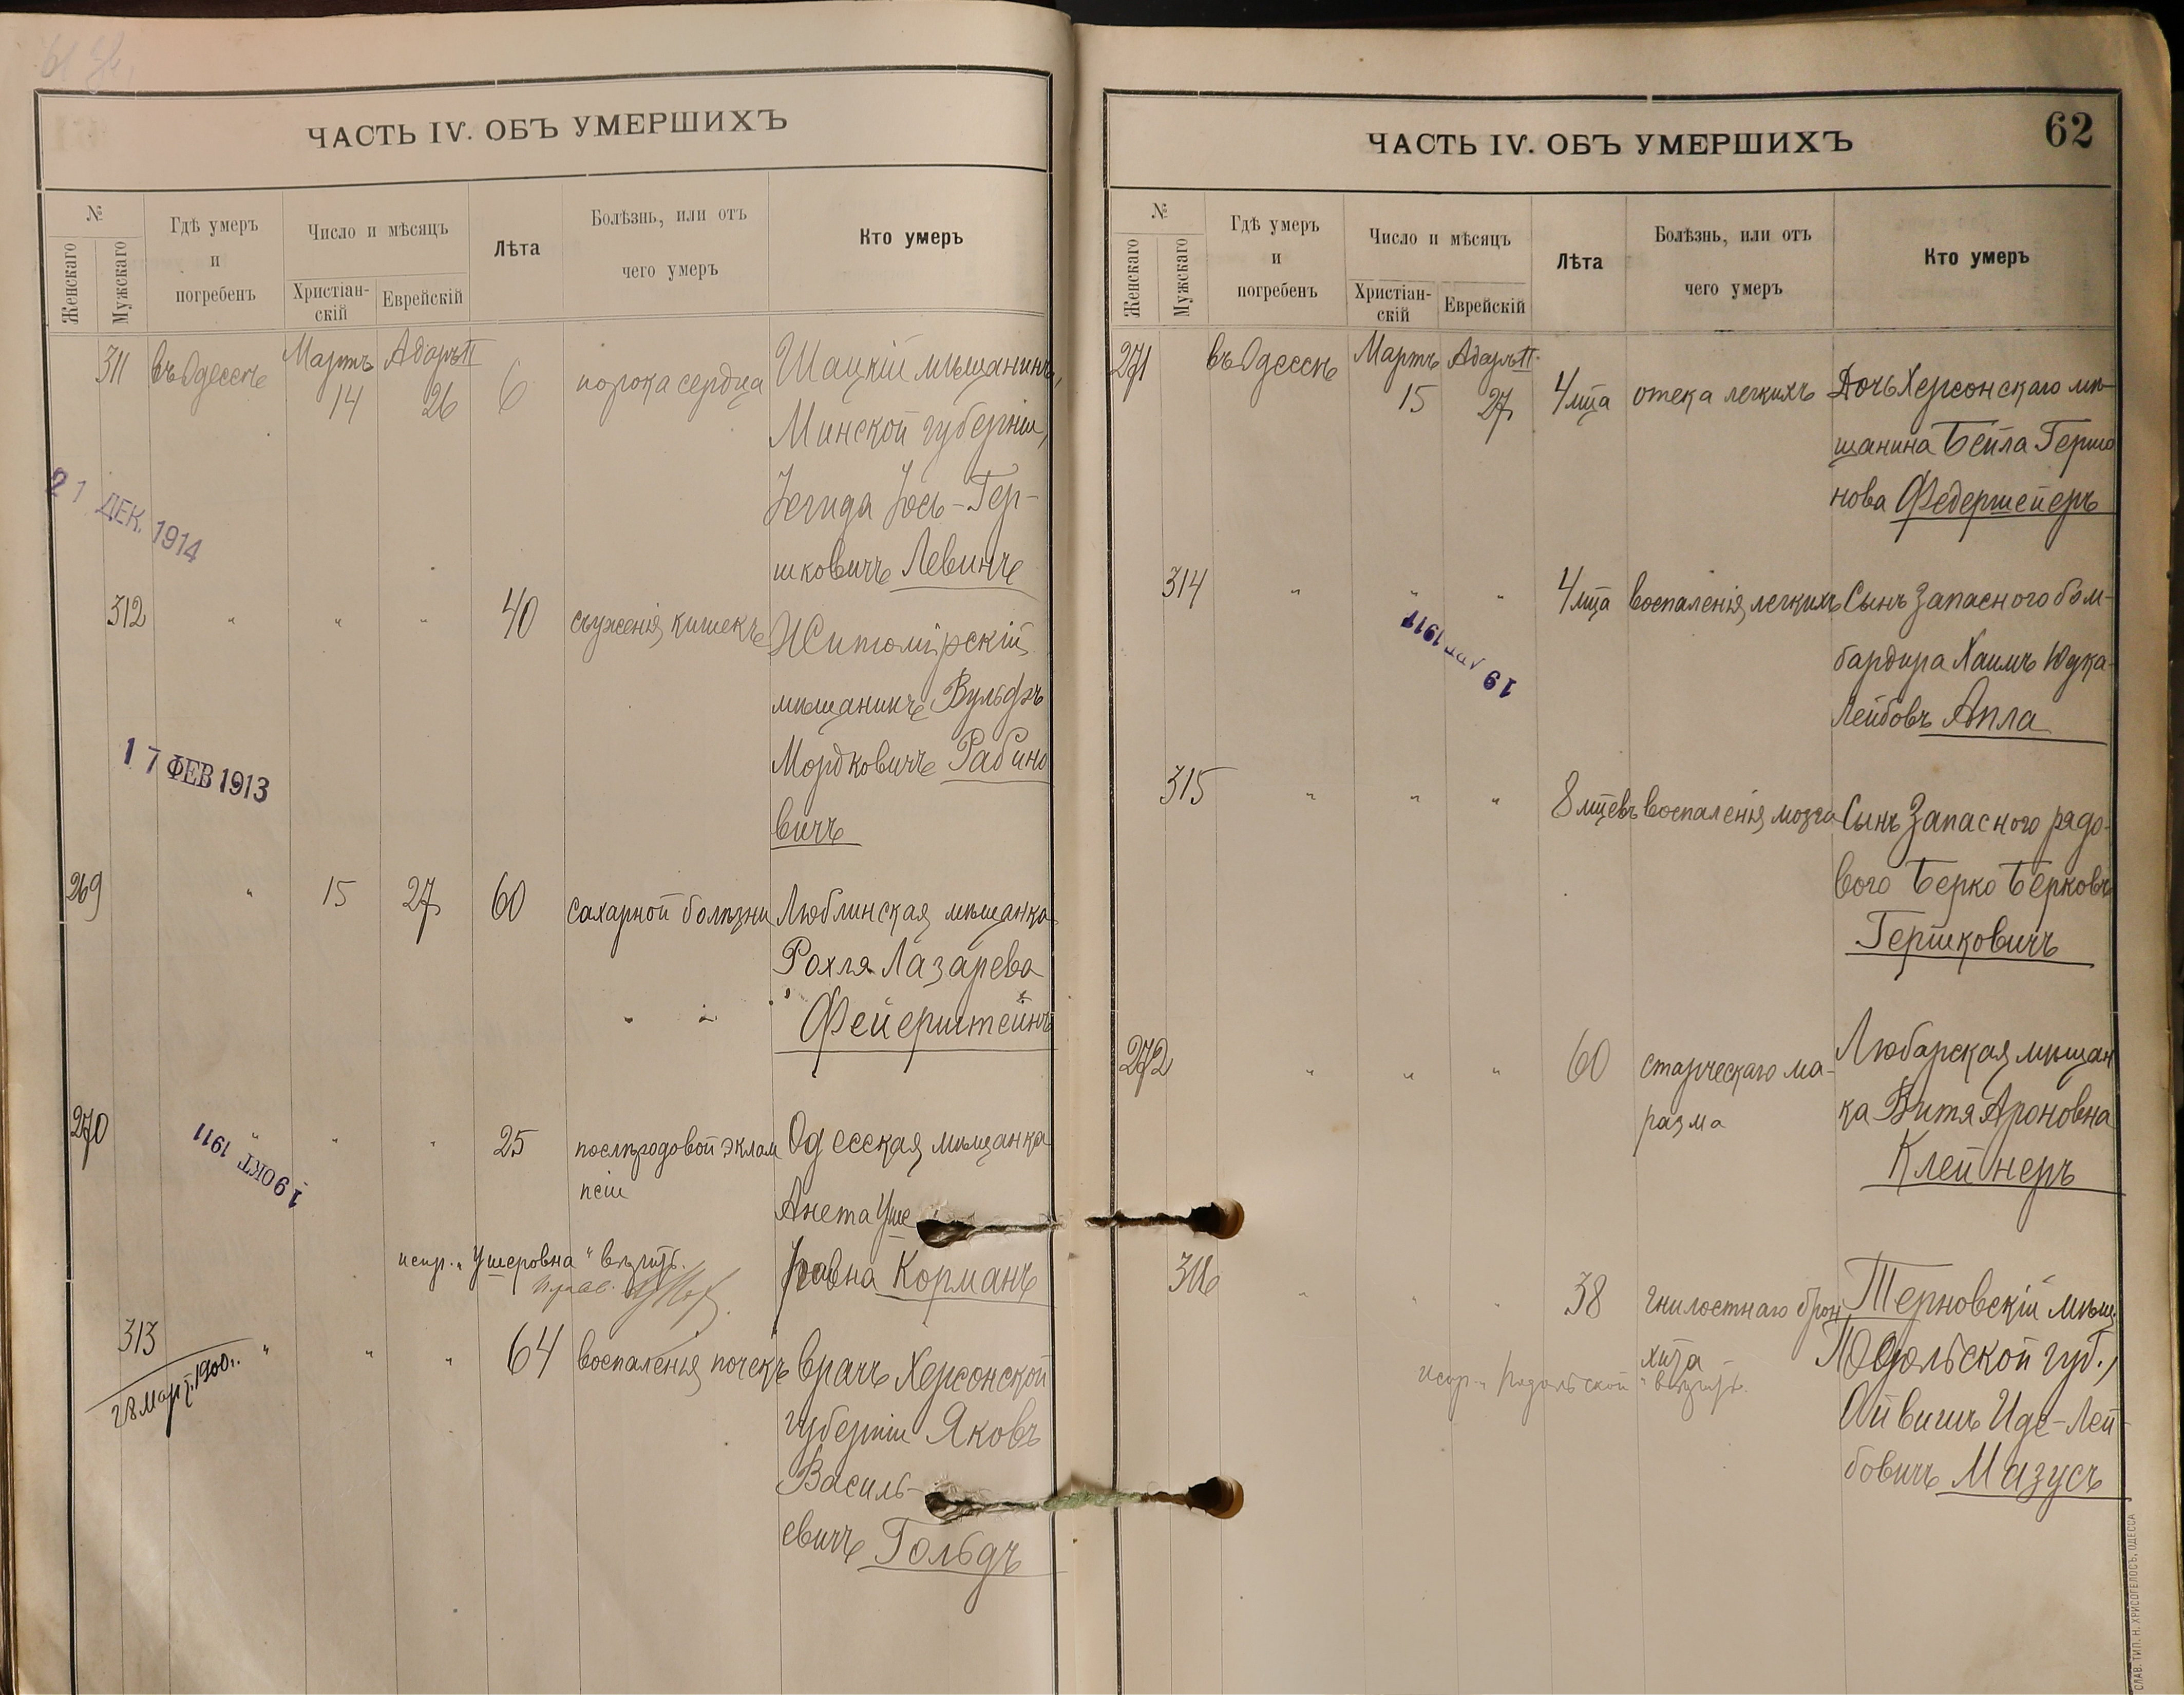 ЧАСТЬ IV. ОБЪ УМЕРШИХЪ
№
Женскаго
Мужскаго
Гдѣ умеръ
и
погребенъ
Число и мѣсяцъ
Христіан-
скій
Еврейскій
Лѣта
Болѣзнь, или отъ
чего умеръ
Кто умеръ
311 въ Одессѣ Мартъ 14 Адаръ II 26 6 порока сердца Шацкій мѣщанинъ,
Минской губерніи,
Іось-Гер-
шковичъ Левинъ
21 ДЕК. 1914
312 " " " 40 съуженія кишекъ Житомірскій
мѣщанинъ Вульфъ
Мордковичъ Рабино
вичъ
17 ФЕВ 1913
269 " 15 27 60 сахарной болѣзни Люблинская мѣщанка
Рохля Лазарева
Фейерштейнъ
270 " " " 25 послѣродовой эклам Одесская мѣщанка
псіи
Анета Уше
ровна Корманъ
19 ОКТ 1911
испр. "Ушеровна" вѣрить.
313 " " " 64 воспаленія почекъ врачъ Херсонской
губерніи Яковъ
Василь-
евичъ Гольдъ
28 Март. 1900 г.
ЧАСТЬ IV. ОБЪ УМЕРШИХЪ
62
№
Женскаго
Мужскаго
Гдѣ умеръ
и
погребенъ
Число и мѣсяцъ
Христіан-
скій
Еврейскій
Лѣта
Болѣзнь, или отъ
чего умеръ
Кто умеръ
271 въ Одессѣ Мартъ 15 Адаръ II. 27 4 мца отека легкихъ Дочь Херсонскаго мѣ-
щанина Бейла Гершо
нова Федершейеръ
314 " " " 4 мца воспаленія легкихъ Сынъ запасного бом-
бардира Хаимъ Юдка-
Лейбовъ Апла
19 1911
315 " " " 8 мцевъ воспаленія мозга Сынъ запасного рядо-
вого Берко Берковъ
Гершковичъ
272 " " " 60 старческаго ма- Любарская мѣщан
разма
ка Витя Ароновна
Клейнеръ
316 " " " 38 гнилостнаго брон Терновскій мѣщ.
хита
Подольской губ.,
испр. "Подольской" вѣрить.
Айвишъ Иде-Лей-
бовичъ Мазусъ
СЛАВ. ТИП. Н. ХРИСОГЕЛОСЪ, ОДЕССА